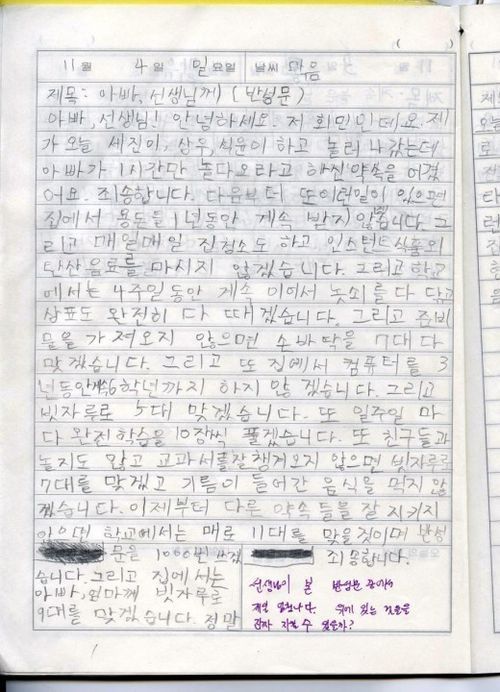 11월 4일 일요일 날씨 맑음
제목: 아빠, 선생님께 (반성문)
아빠, 선생님! 안녕하세요. 저 희민인데요. 제
가 오늘 세진이, 상우, 석윤이 하고 놀러 나갔는데
아빠가 1시간만 놀다오라고 하신 약속을 어겼
어요. 죄송합니다. 다음부터 또 이런일이 있으면
집에서 용돈을 1년동안 계속 받지 않겠습니다. 그
리고 매일매일 집청소도 하고 인스턴트식품과
탄산음료를 마시지 않겠습니다. 그리고 학교
에서는 4주일동안 계속 이어서 놋쇠를 다 닦고
상표도 완전히 다 따겠습니다. 그리고 준비
물을 가져오지 않으면 손바닥을 7대 다
맞겠습니다. 그리고 또 집에서 컴퓨터를 3
년동안 6학년까지 하지 않겠습니다. 그리고
빗자루로 5대 맞겠습니다. 또 일주일 마
다 완전학습을 10장씩 풀겠습니다. 또 친구들과
놀지도 않고 교과서를 잘 챙겨오지 않으면 빗자루로
7대를 맞겠고 기름이 들어간 음식을 먹지 않
겠습니다. 이제부터 다른 약속들을 잘 지키지
않으면 학교에서는 매로 11대를 맞을것이며 반성
문을 1000번 쓰겠
습니다. 그리고 집에서는
아빠, 엄마께 빗자루로
9대를 맞겠습니다. 정말
죄송합니다.
선생님이 본 반성문 중에서
제일 길구나. 위에 있는 것들을
감자 지킬 수 있을까?